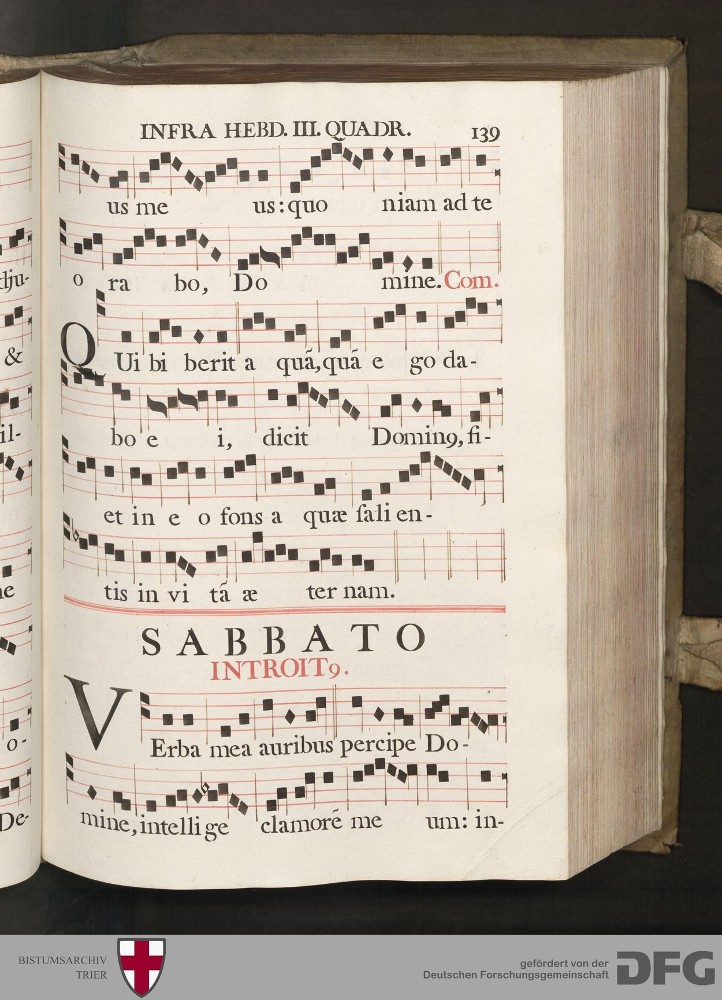 INFRA HEBD. III. QUADR. 139
us me us: quo niam ad te
o ra bo, Do mine. Com.
QUi bi berit a quã, quã e go da-
bo e i, dicit Domin9, fi-
et in e o fons a quæ ſali en-
tis in vi tã æ ter nam.
SABBATO
INTROIT9.
VErba mea auribus percipe Do-
mine, intelli ge clamorẽ me um: in-
dju-
&
il-
ne
o-
De-
BISTUMSARCHIV
TRIER
gefördert von der
Deutschen Forschungsgemeinschaft
DFG